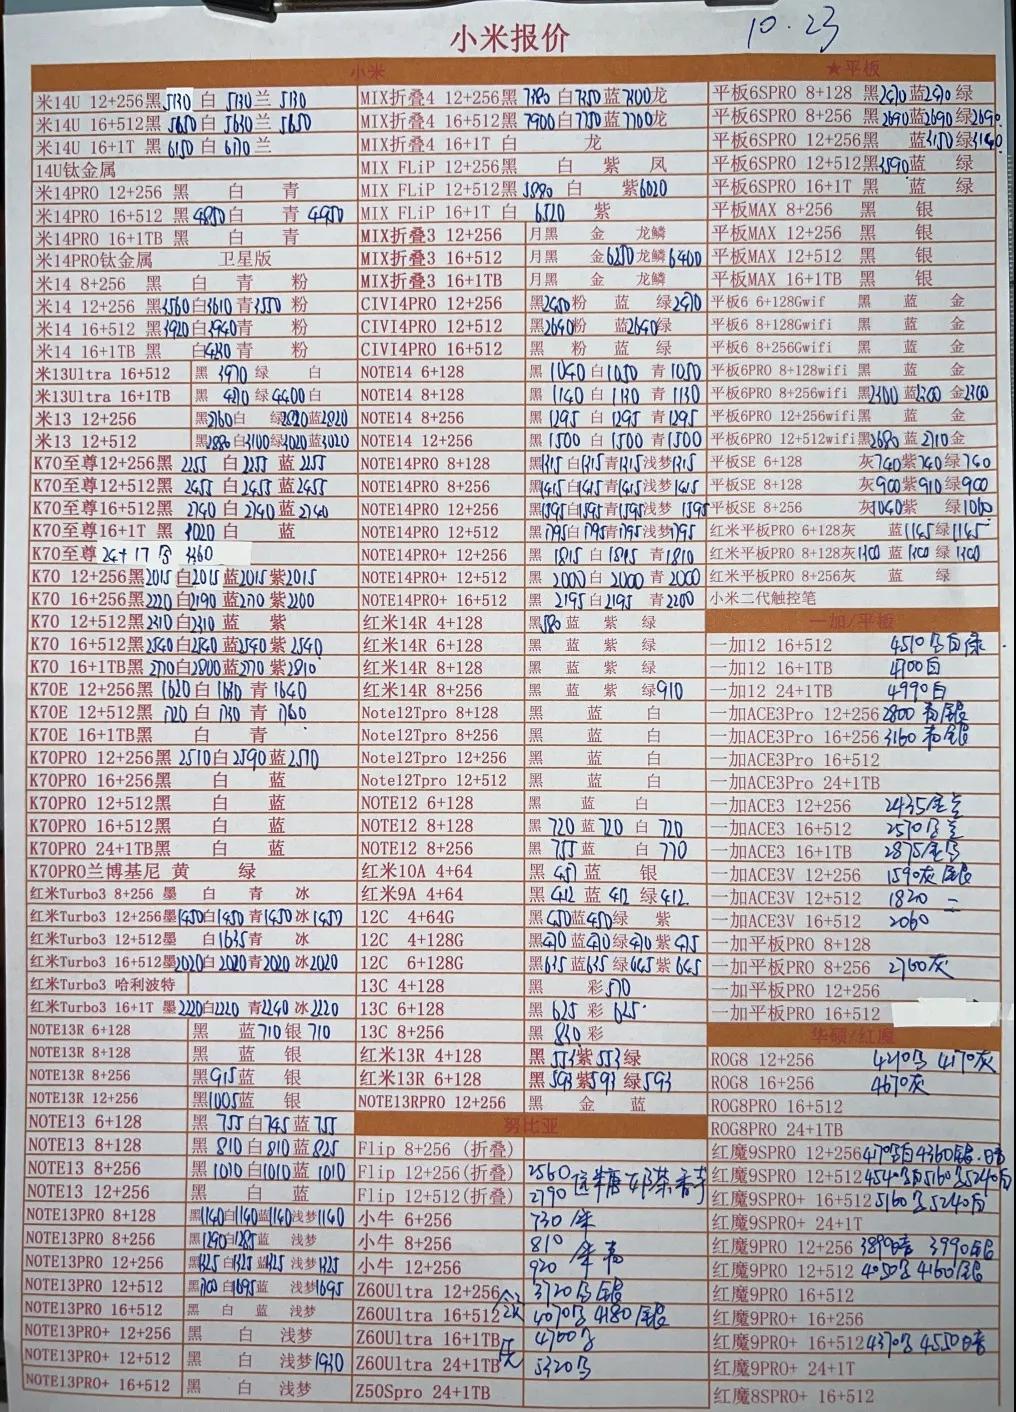 小米报价
10.23
小米
米14U 12+256黑5130 白 5130兰 5130
米14U 16+512黑5650白 5630兰 5650
米14U 16+1T 黑6150 白 6170兰
14U钛金属
米14PRO 12+256 黑 白 青
米14PRO 16+512 黑4850白 青 4950
米14PRO 16+1TB 黑 白 青
米14PRO钛金属 卫星版
米14 8+256 黑 白 青 粉
米14 12+256 黑3560白3610青3550粉
米14 16+512 黑3920白3940青 粉
米14 16+1TB 黑 白4230青 粉
米13Ultra 16+512 黑 3970 绿 白
米13Ultra 16+1TB 黑 4210 绿4400白
米13 12+256 黑2760白 绿2820蓝2820
米13 12+512 黑2880白3100绿3020蓝3020
K70至尊12+256黑 2255 白2255 蓝2255
K70至尊12+512黑 2455 白2455 蓝2455
K70至尊16+512黑 2740 白2740 蓝2740
K70至尊16+1T 黑 3020白 蓝
K70至尊24+1T 3360
K70 12+256黑2015白2015蓝2015紫2015
K70 16+256黑2220白2190蓝2170紫2200
K70 12+512黑2310白2310蓝 紫
K70 16+512黑2540白2540蓝2540紫2540
K70 16+1TB黑2770白2800蓝2770紫2810
K70E 12+256黑 1620白1630 青1640
K70E 12+512黑 1720 白 1730 青 1760
K70E 16+1TB黑 白 青
K70PRO 12+256黑 2510白2590蓝2570
K70PRO 16+256黑 白 蓝
K70PRO 12+512黑 白 蓝
K70PRO 16+512黑 白 蓝
K70PRO 24+1TB黑 白 蓝
K70PRO兰博基尼 黄 绿
红米Turbo3 8+256 墨 白 青 冰
红米Turbo3 12+256墨1450白1450青1450冰1450
红米Turbo3 12+512墨 白1635青 冰
红米Turbo3 16+512墨2020白2020青2020冰2020
红米Turbo3 哈利波特
红米Turbo3 16+1T 墨2220白2220 青2240冰2220
NOTE13R 6+128 黑 蓝710银 710
NOTE13R 8+128 黑 蓝 银
NOTE13R 8+256 黑915蓝 银
NOTE13R 12+256 黑1005蓝 银
NOTE13 6+128 黑 755白745蓝 755
NOTE13 8+128 黑 810白810蓝 825
NOTE13 8+256 黑 1010白1010蓝 1010
NOTE13 12+256 黑 白 蓝
NOTE13PRO 8+128 黑1140白1140蓝1140浅梦1140
NOTE13PRO 8+256 黑1290白1285蓝 浅梦
NOTE13PRO 12+256 黑1325白1325蓝1325浅梦1325
NOTE13PRO 12+512 黑1700白1695蓝 浅梦1695
NOTE13PRO 16+512 黑 白 蓝 浅梦
NOTE13PRO+ 12+256 黑 白 浅梦
NOTE13PRO+ 12+512 黑 白 浅梦1930
NOTE13PRO+ 16+512 黑 白 浅梦
MIX折叠4 12+256黑 7380 白7350蓝7300龙
MIX折叠4 16+512黑 7900白7750蓝7700龙
MIX折叠4 16+1T 白 龙
MIX FLiP 12+256黑 白 紫 凤
MIX FLiP 12+512黑5880 白 紫6020
MIX FLiP 16+1T 白 6520 紫
MIX折叠3 12+256 月黑 金 龙鳞
MIX折叠3 16+512 月黑 金6250龙鳞6400
MIX折叠3 16+1TB 月黑 金 龙鳞
CIVI4PRO 12+256 黑2450粉 蓝 绿2470
CIVI4PRO 12+512 黑2640粉 蓝2640绿
CIVI4PRO 16+512 黑 粉 蓝 绿
NOTE14 6+128 黑 1040白1050 青1050
NOTE14 8+128 黑 1140 白 1130 青 1130
NOTE14 8+256 黑 1295 白 1295 青1295
NOTE14 12+256 黑 1500 白 1500 青1500
NOTE14PRO 8+128 黑1315白1315青1315浅梦1315
NOTE14PRO 8+256 黑1415白1415青1415浅梦1415
NOTE14PRO 12+256 黑1595白1595青1595浅梦1595
NOTE14PRO 12+512 黑1795白1795青1795浅梦1795
NOTE14PRO+ 12+256 黑 1815 白 1815 青1810
NOTE14PRO+ 12+512 黑 2000白 2000青2000
NOTE14PRO+ 16+512 黑 2195白2195 青2200
红米14R 4+128 黑580蓝 紫 绿
红米14R 6+128 黑 蓝 紫 绿
红米14R 8+128 黑 蓝 紫 绿
红米14R 8+256 黑 蓝 紫 绿910
Note12Tpro 8+128 黑 蓝 白
Note12Tpro 8+256 黑 蓝 白
Note12Tpro 12+256 黑 蓝 白
Note12Tpro 12+512 黑 蓝 白
NOTE12 6+128 黑 蓝 白
NOTE12 8+128 黑 720 蓝 720 白 720
NOTE12 8+256 黑 755 蓝 白 770
红米10A 4+64 黑 451 蓝 银
红米9A 4+64 黑412 蓝 412 绿412
12C 4+64G 黑450蓝450绿 紫
12C 4+128G 黑470蓝470绿470紫475
12C 6+128G 黑615蓝635绿645紫645
13C 4+128 黑 彩570
13C 6+128 黑 625 彩 625
13C 8+256 黑 830 彩
红米13R 4+128 黑553紫553绿
红米13R 6+128 黑593紫593 绿593
NOTE13RPRO 12+256 黑 金 蓝
努比亚
Flip 8+256 (折叠)
Flip 12+256(折叠) 2560
Flip 12+512(折叠) 2790
小牛 6+256 730
小牛 8+256 810
小牛 12+256 920
Z60Ultra 12+256 3720
Z60Ultra 16+512 4070 4180
Z60Ultra 16+1TB 4700
Z60Ultra 24+1TB 5320
Z50Spro 24+1TB
★平板
平板6SPRO 8+128 黑2470蓝2470 绿
平板6SPRO 8+256 黑2690蓝2690绿2690
平板6SPRO 12+256 黑 蓝3150绿3140
平板6SPRO 12+512黑3590蓝 绿
平板6SPRO 16+1T 黑 蓝 绿
平板MAX 8+256 黑 银
平板MAX 12+256 黑 银
平板MAX 12+512 黑 银
平板MAX 16+1TB 黑 银
平板6 6+128Gwif 黑 蓝 金
平板6 8+128Gwifi 黑 蓝 金
平板6 8+256Gwifi 黑 蓝 金
平板6PRO 8+128wifi 黑 蓝 金
平板6PRO 8+256wifi 黑2300 蓝2300 金2300
平板6PRO 12+256wifi黑 蓝 金
平板6PRO 12+512wifi黑2680 蓝 2710金
平板SE 6+128 灰740紫740绿740
平板SE 8+128 灰900紫910绿900
平板SE 8+256 灰1040紫 绿1060
红米平板PRO 6+128灰 蓝1145绿1145
红米平板PRO 8+128灰1300蓝1300 绿1300
红米平板PRO 8+256灰 蓝 绿
小米二代触控笔
一加/平板
一加12 16+512 4510 白绿
一加12 16+1TB 4700白
一加12 24+1TB 4990白
一加ACE3Pro 12+256 2800
一加ACE3Pro 16+256 3160
一加ACE3Pro 16+512
一加ACE3Pro 24+1TB
一加ACE3 12+256 2435
一加ACE3 16+512 2570
一加ACE3 16+1TB 2875
一加ACE3V 12+256 1590灰
一加ACE3V 12+512 1820
一加ACE3V 16+512 2060
一加平板PRO 8+128
一加平板PRO 8+256 2760灰
一加平板PRO 12+256
一加平板PRO 16+512
华硕/红魔
ROG8 12+256 4210 4170灰
ROG8 16+256 4670灰
ROG8PRO 16+512
ROG8PRO 24+1TB
红魔9SPRO 12+256 4170 4360
红魔9SPRO 12+512 4540 5160 5240
红魔9SPRO+ 16+512 5160 5240
红魔9SPRO+ 24+1T
红魔9PRO 12+256 3890 3990
红魔9PRO 12+512 4050 4160
红魔9PRO 16+512
红魔9PRO+ 16+256
红魔9PRO+ 16+512 4370 4550
红魔9PRO+ 24+1T
红魔8SPRO+ 16+512